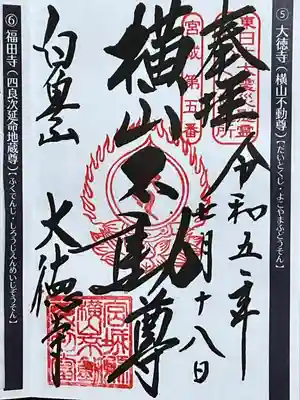 ⑤ 大徳寺(横山不動尊)【だいとくじ・よこやまふどうそん】
奉拝
令和五年
七月十八日
宮城 第五番
横山不動尊
白魚山
大徳寺
⑥ 福田寺(四良次延命地蔵尊)【ふくでんじ・しろうじえんめいじぞうそん】